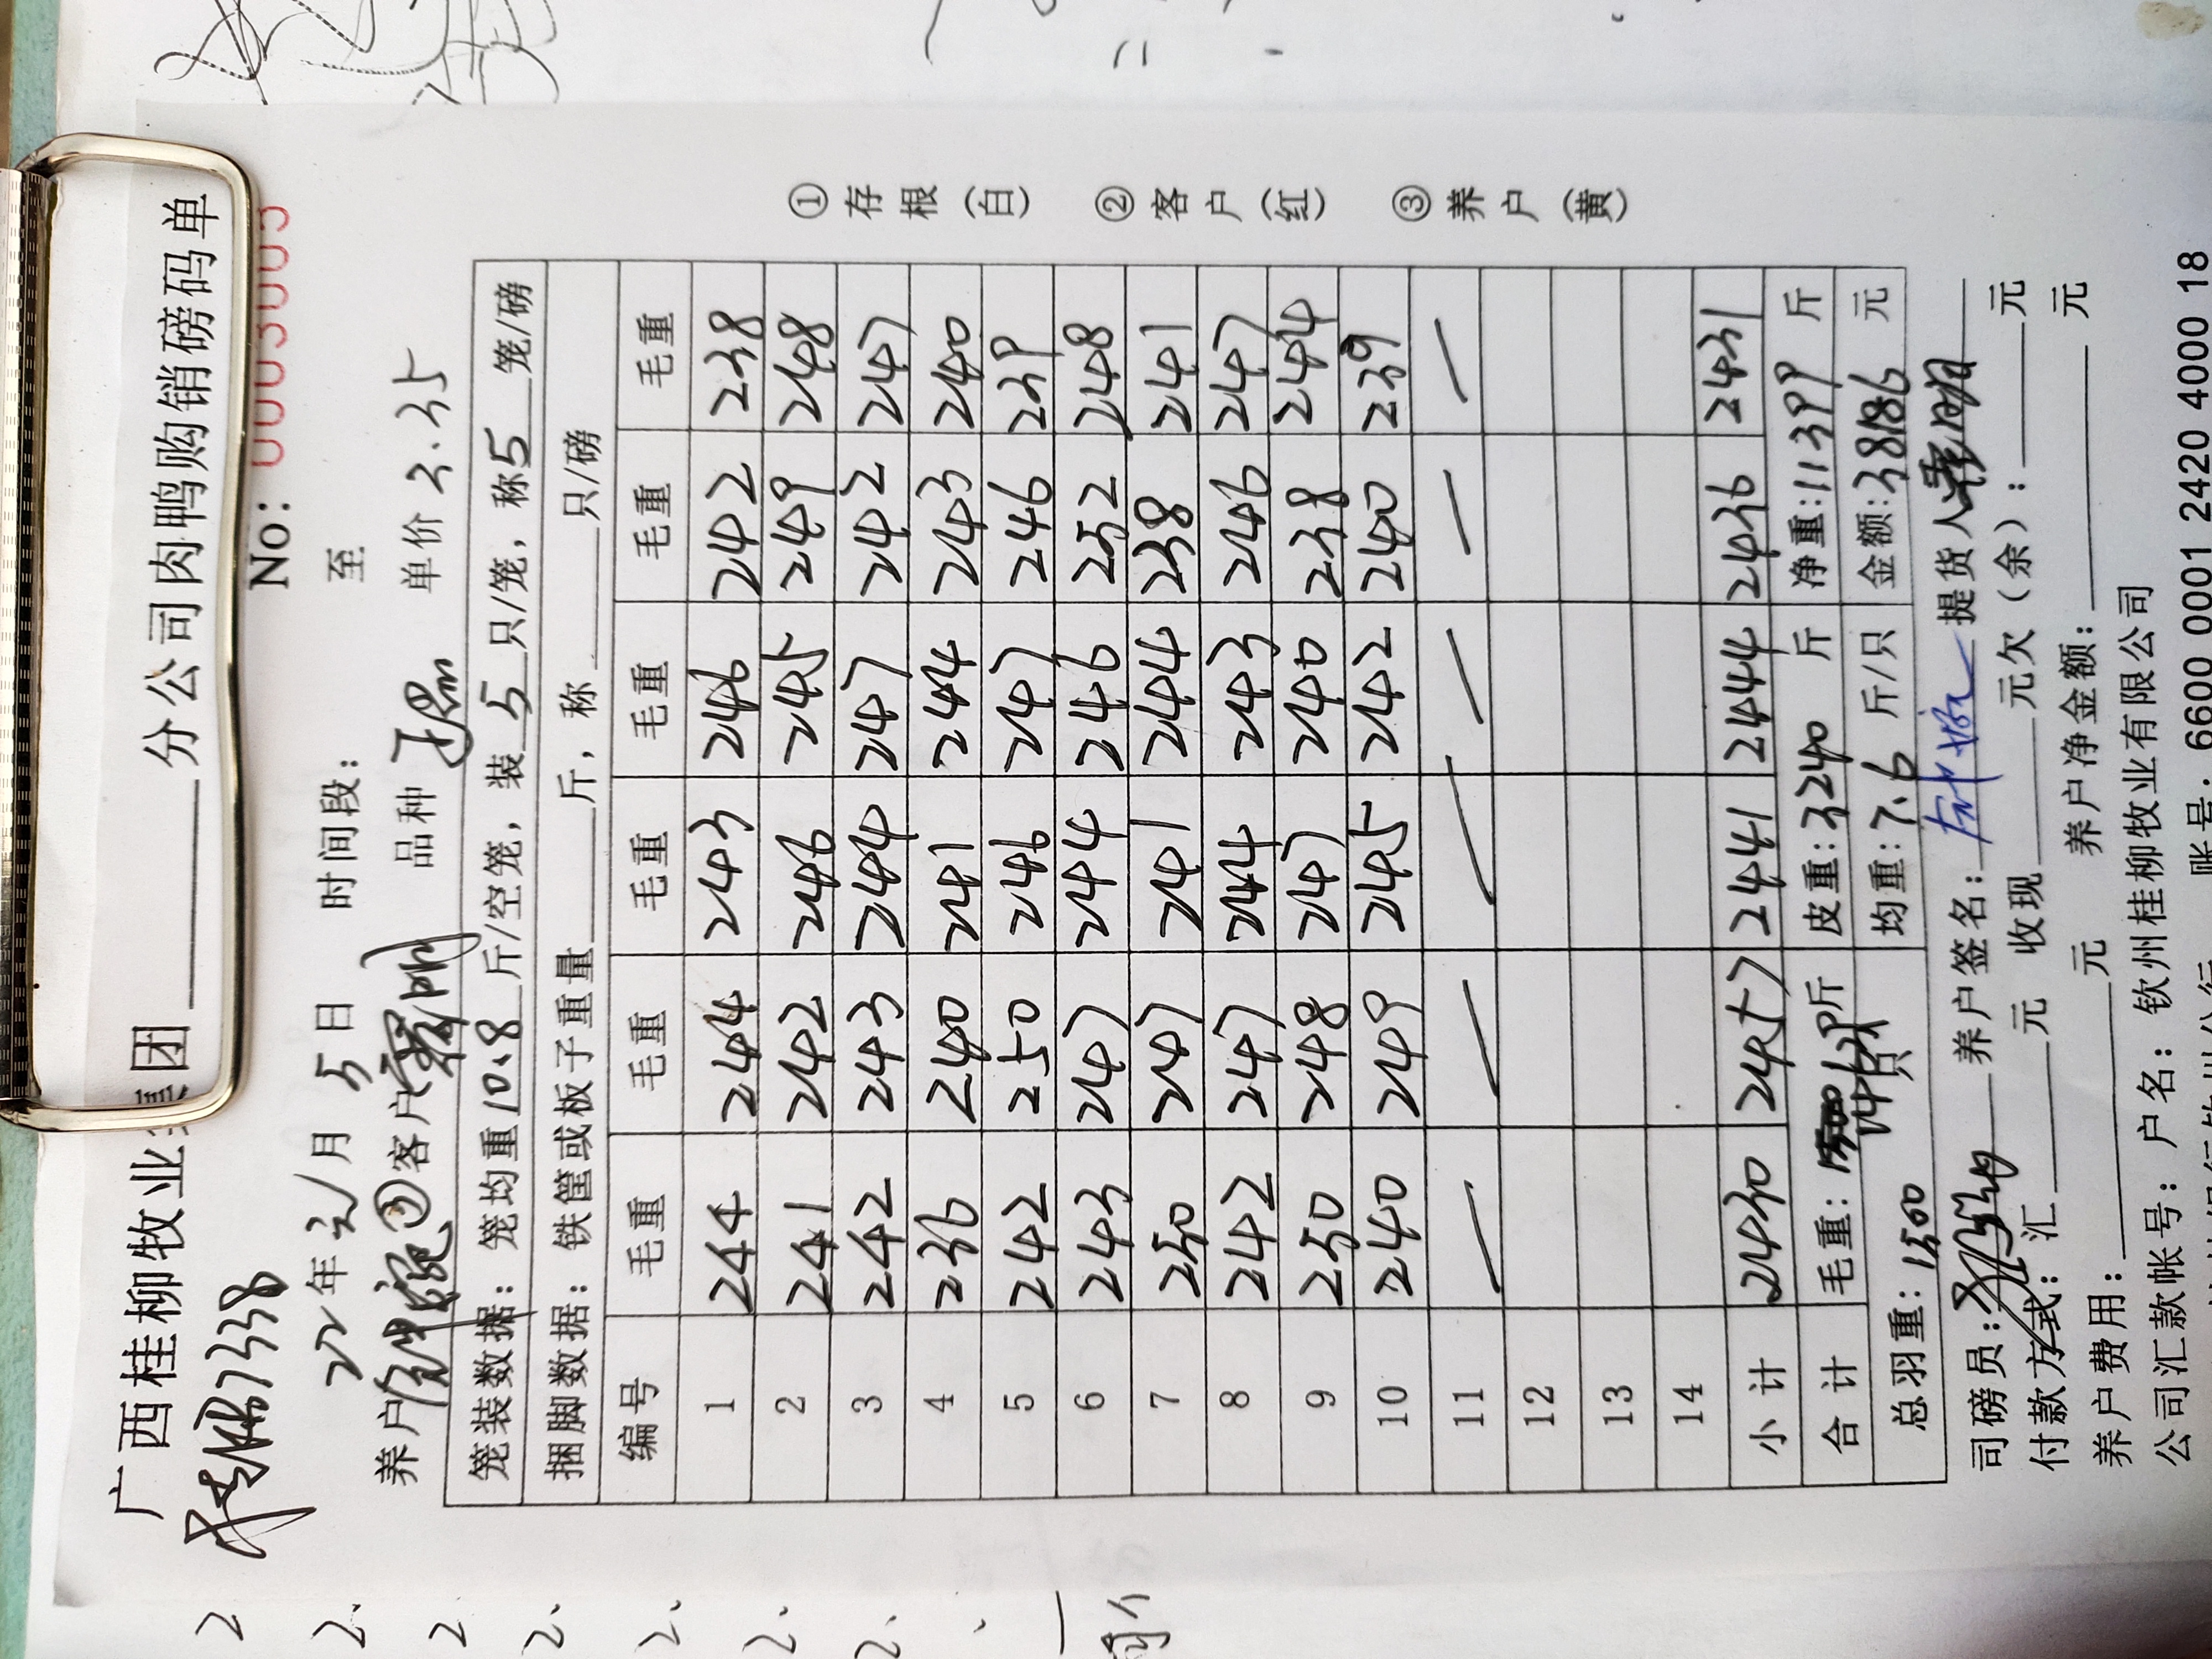 广西桂柳牧业集团______分公司肉鸭购销磅码单
7338
No: 0003005
22年元月5日 时间段: 至
养户 客户 品种 单价 3.35
笼装数据: 笼均重10.8斤/空笼, 装5只/笼, 称5笼/磅
捆脚数据: 铁筐或板子重量____斤, 称____只/磅
编号 毛重 毛重 毛重 毛重 毛重 毛重
1 244 244 243 246 242 238
2 241 242 246 245 249 248
3 242 243 244 247 242 247
4 236 240 241 244 243 240
5 242 250 246 247 246 239
6 243 247 244 246 252 248
7 250 247 241 244 238 241
8 242 247 244 243 246 247
9 250 248 247 240 238 244
10 240 249 245 242 240 239
11 / / / / / /
12
13
14
小计 2430 2457 2441 2444 2436 2431
合计 毛重: 斤 皮重: 3240 斤 净重: 11399 斤
总羽重: 1500 只 均重: 7.6 斤/只 金额: 38186 元
司磅员: 养户签名: 提货人
付款方式: 汇____元 收现____元欠(余):____元
养户费用:____元 养户净金额:____元
公司汇款帐号: 户名: 钦州桂柳牧业有限公司
账号: 6600 0001 2420 4000 18
①存根(白) ②客户(红) ③养户(黄)